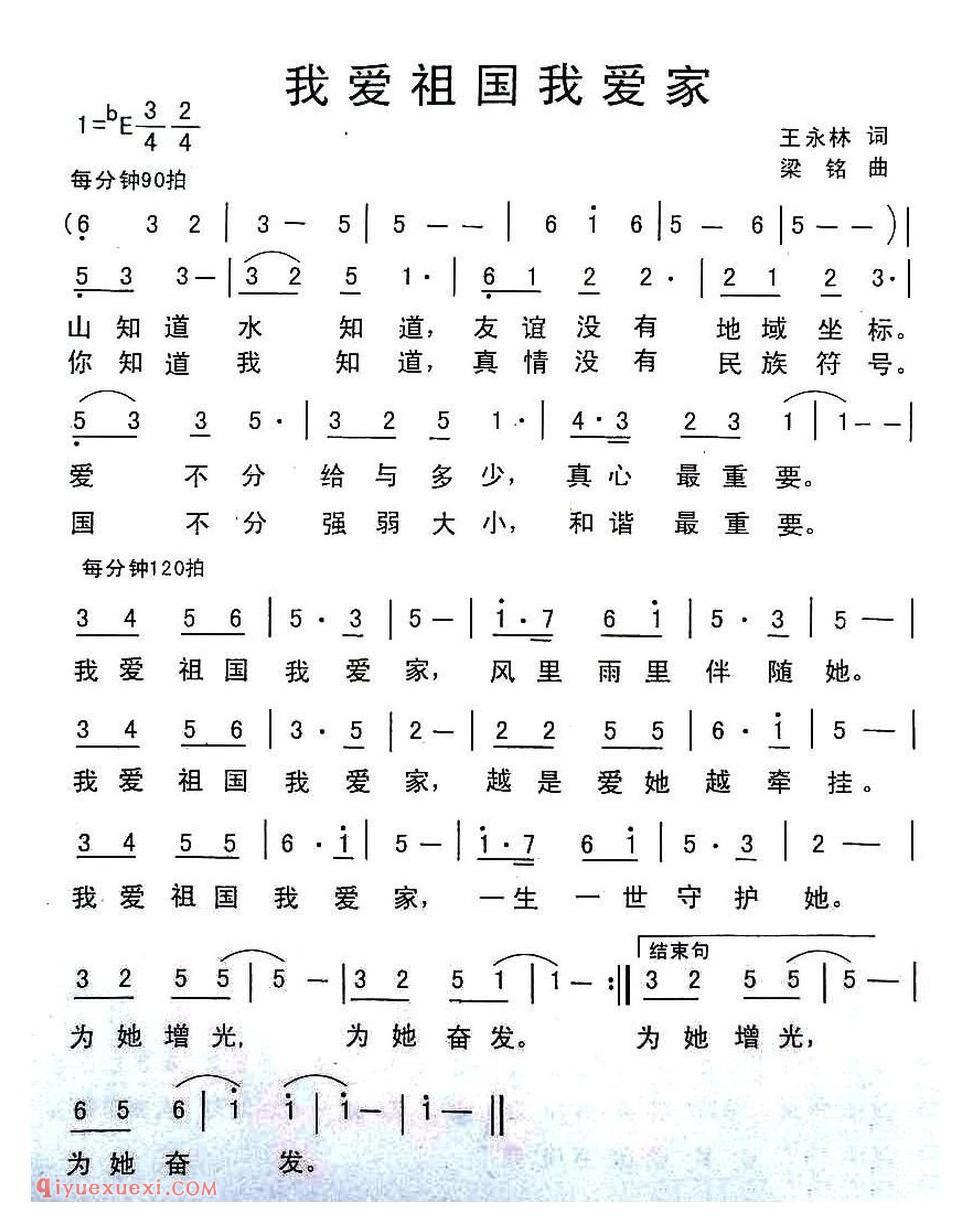 我爱祖国我爱家
1=ᵇE 3/4 2/4
王永林 词
梁铭 曲
每分钟90拍
(6̣ 3 2 | 3 — 5 | 5 — — | 6 i̇ 6 | 5 — 6 | 5 — — ) |
5̣ 3 3 — | 3 2 5 1 · | 6̣ 1 2 2 · | 2 1 2 3 · |
山知道水 知道，友谊没有 地域坐标。
你知道我 知道，真情没有 民族符号。
5̣ 3 3 5 · | 3 2 5 1 · | 4 · 3 2 3 1 | 1 — — |
爱 不分 给与多少，真心最重要。
国 不分 强弱大小，和谐最重要。
每分钟120拍
3 4 5 6 | 5 · 3 | 5 — | i̇ · 7 6 i̇ | 5 · 3 | 5 — |
我爱祖国我爱家，风里雨里伴随她。
3 4 5 6 | 3 · 5 | 2 — | 2 2 5 5 | 6 · i̇ | 5 — |
我爱祖国我爱家，越是爱她越牵挂。
3 4 5 5 | 6 · i̇ | 5 — | i̇ · 7 6 i̇ | 5 · 3 | 2 — |
我爱祖国我爱家，一生一世守护她。
结束句
3 2 5 5 | 5 — | 3 2 5 1 | 1 — :‖ 3 2 5 5 | 5 — |
为她增光，为她奋发。为她增光，
6 5 6 | i̇ i̇ | i̇ — | i̇ — ‖
为她奋 发。
qiyuexuexi.com